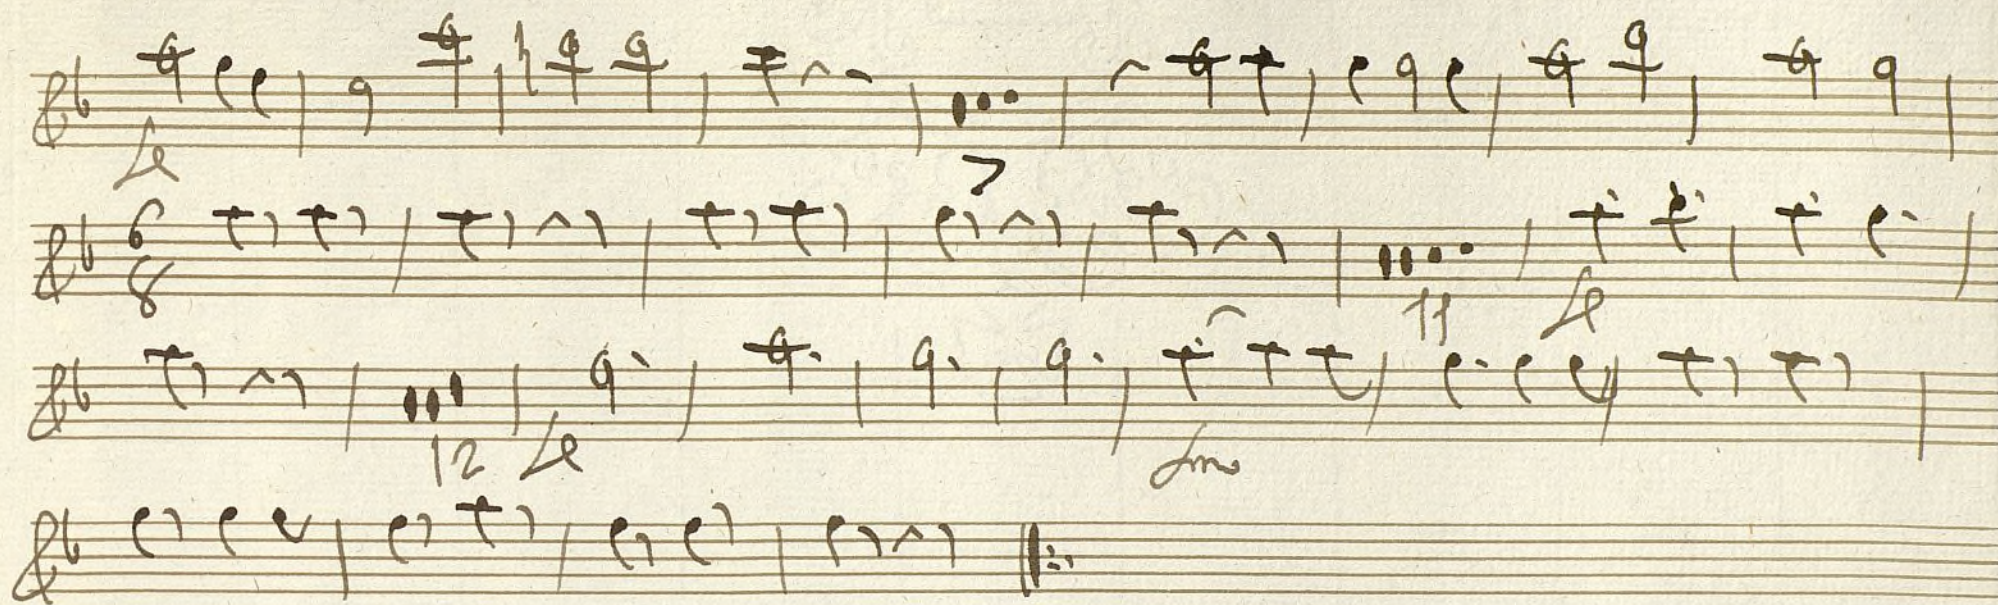 fe 7
6 8 11 fe
12 fe fmo